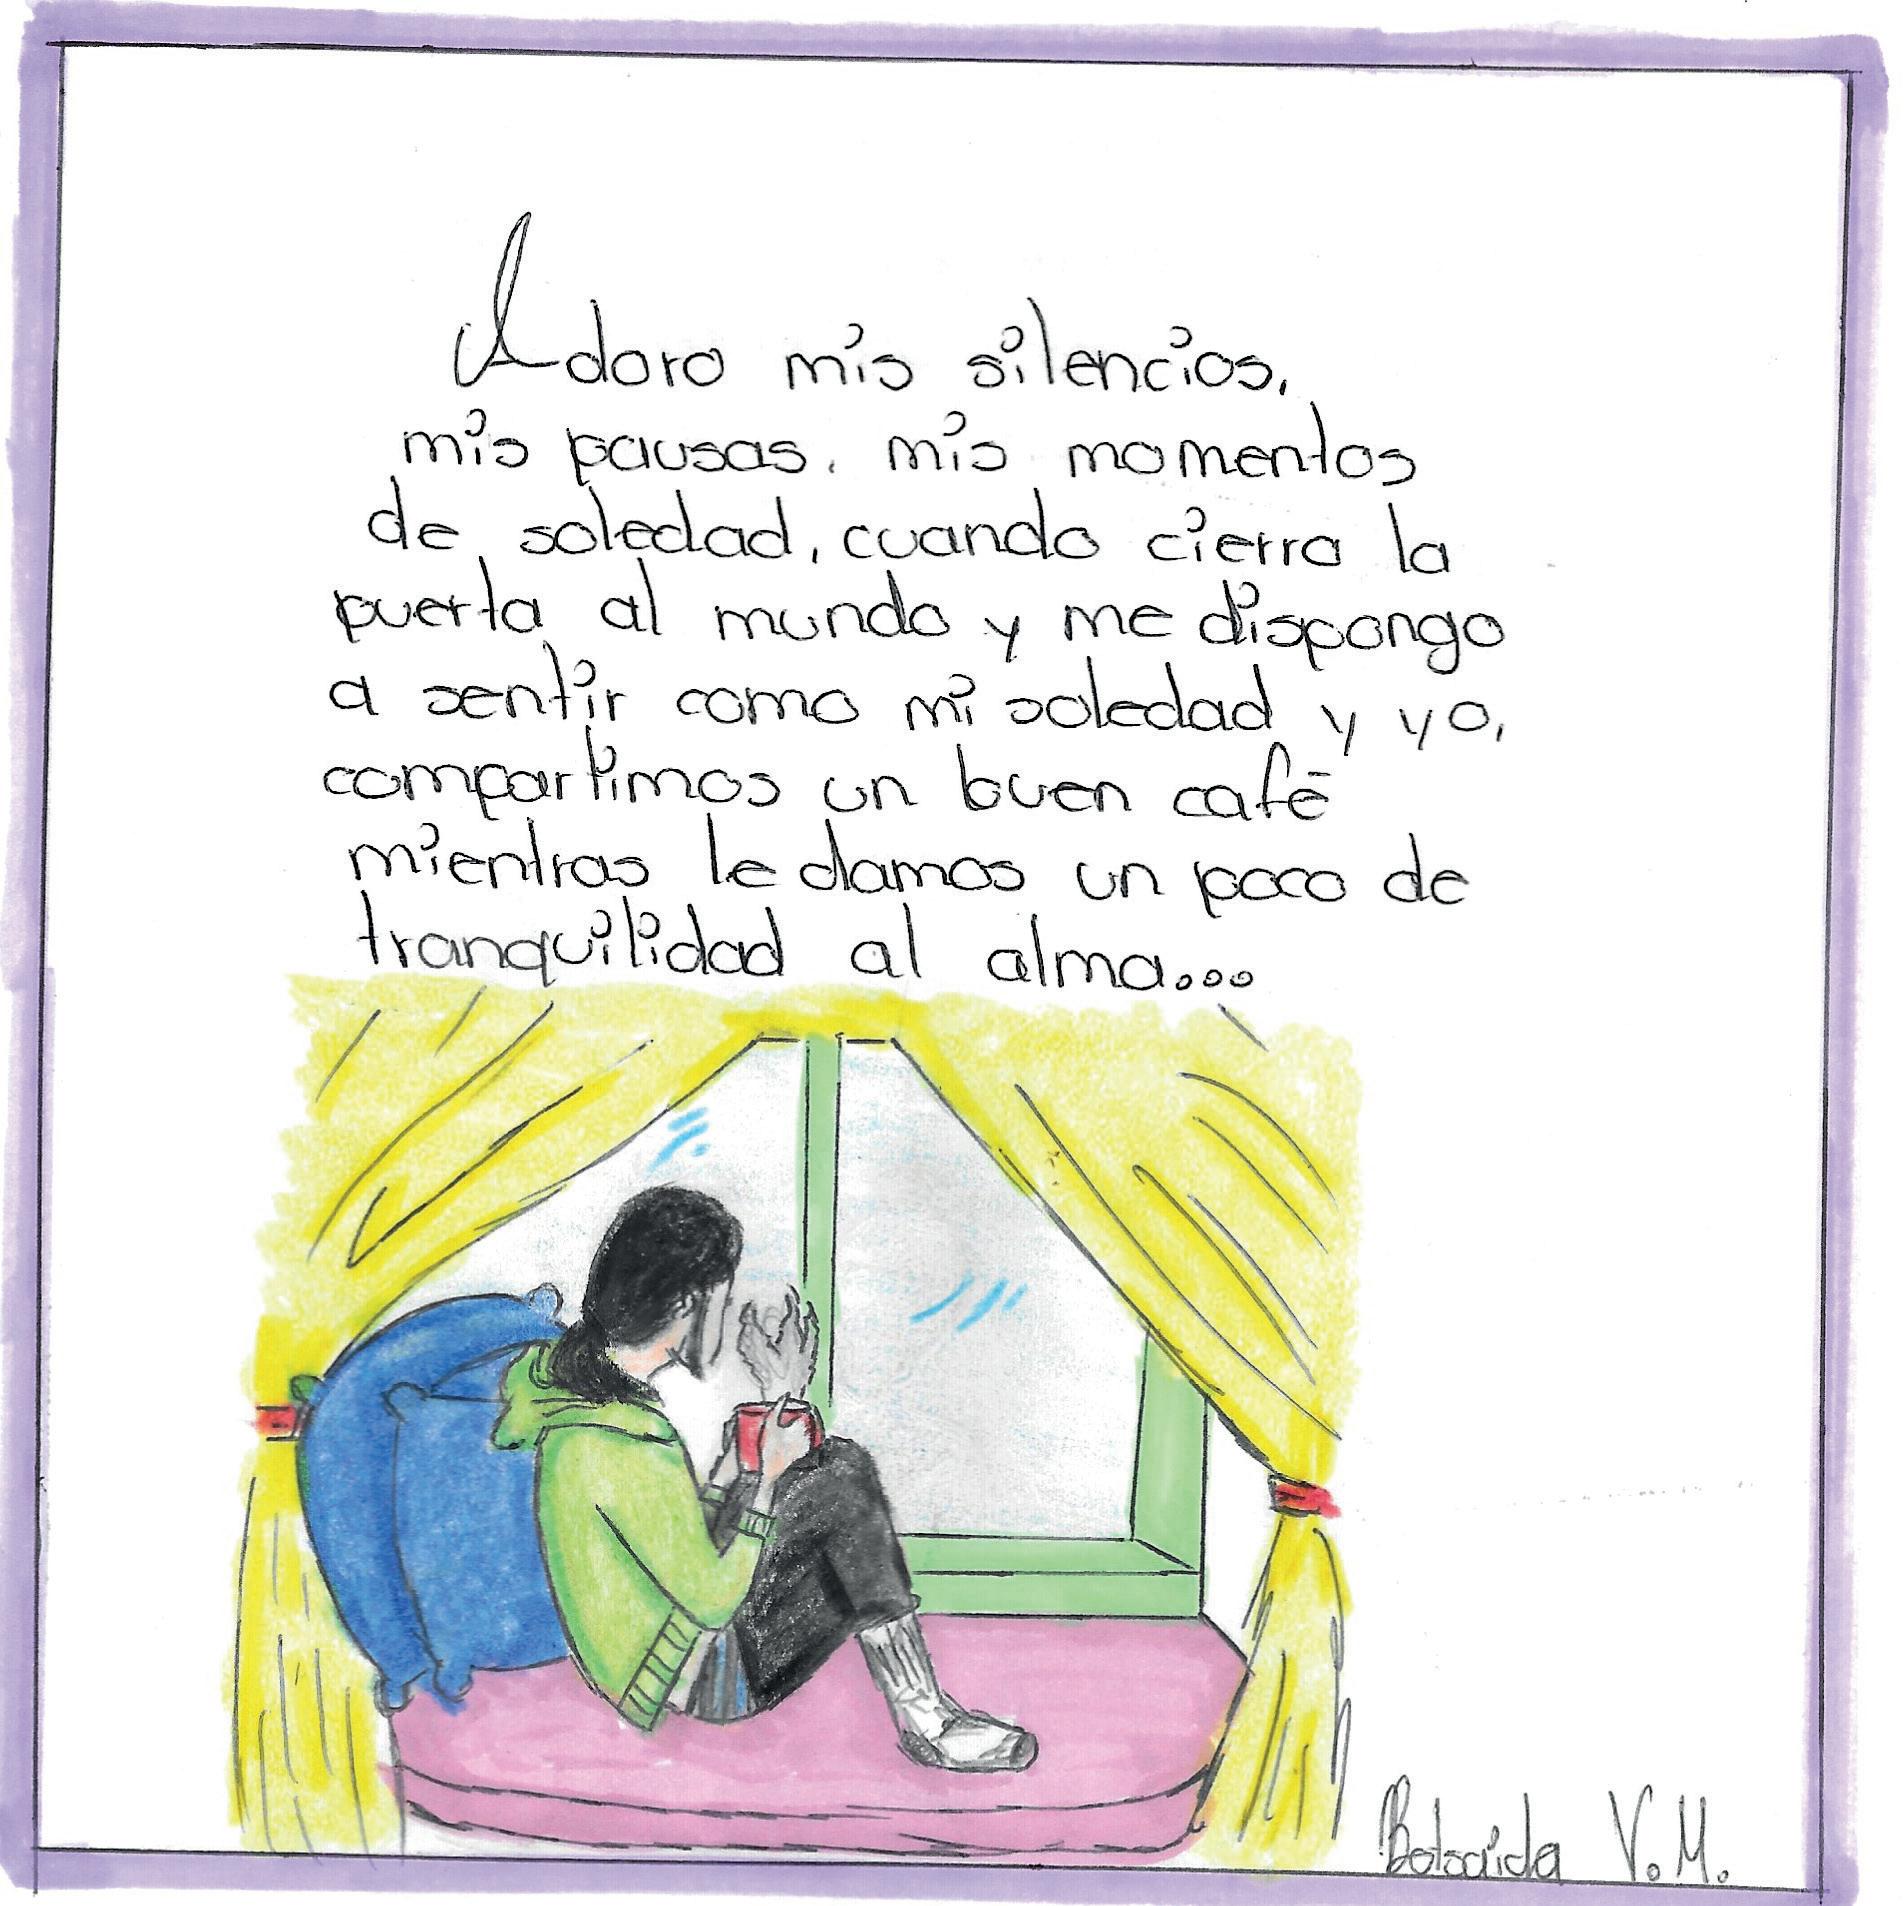 Adoro mis silencios,
mis pausas, mis momentos
de soledad, cuando cierro la
puerta al mundo y me dispongo
a sentir como mi soledad y yo,
compartimos un buen café
mientras le damos un poco de
tranquilidad al alma...
V.M.